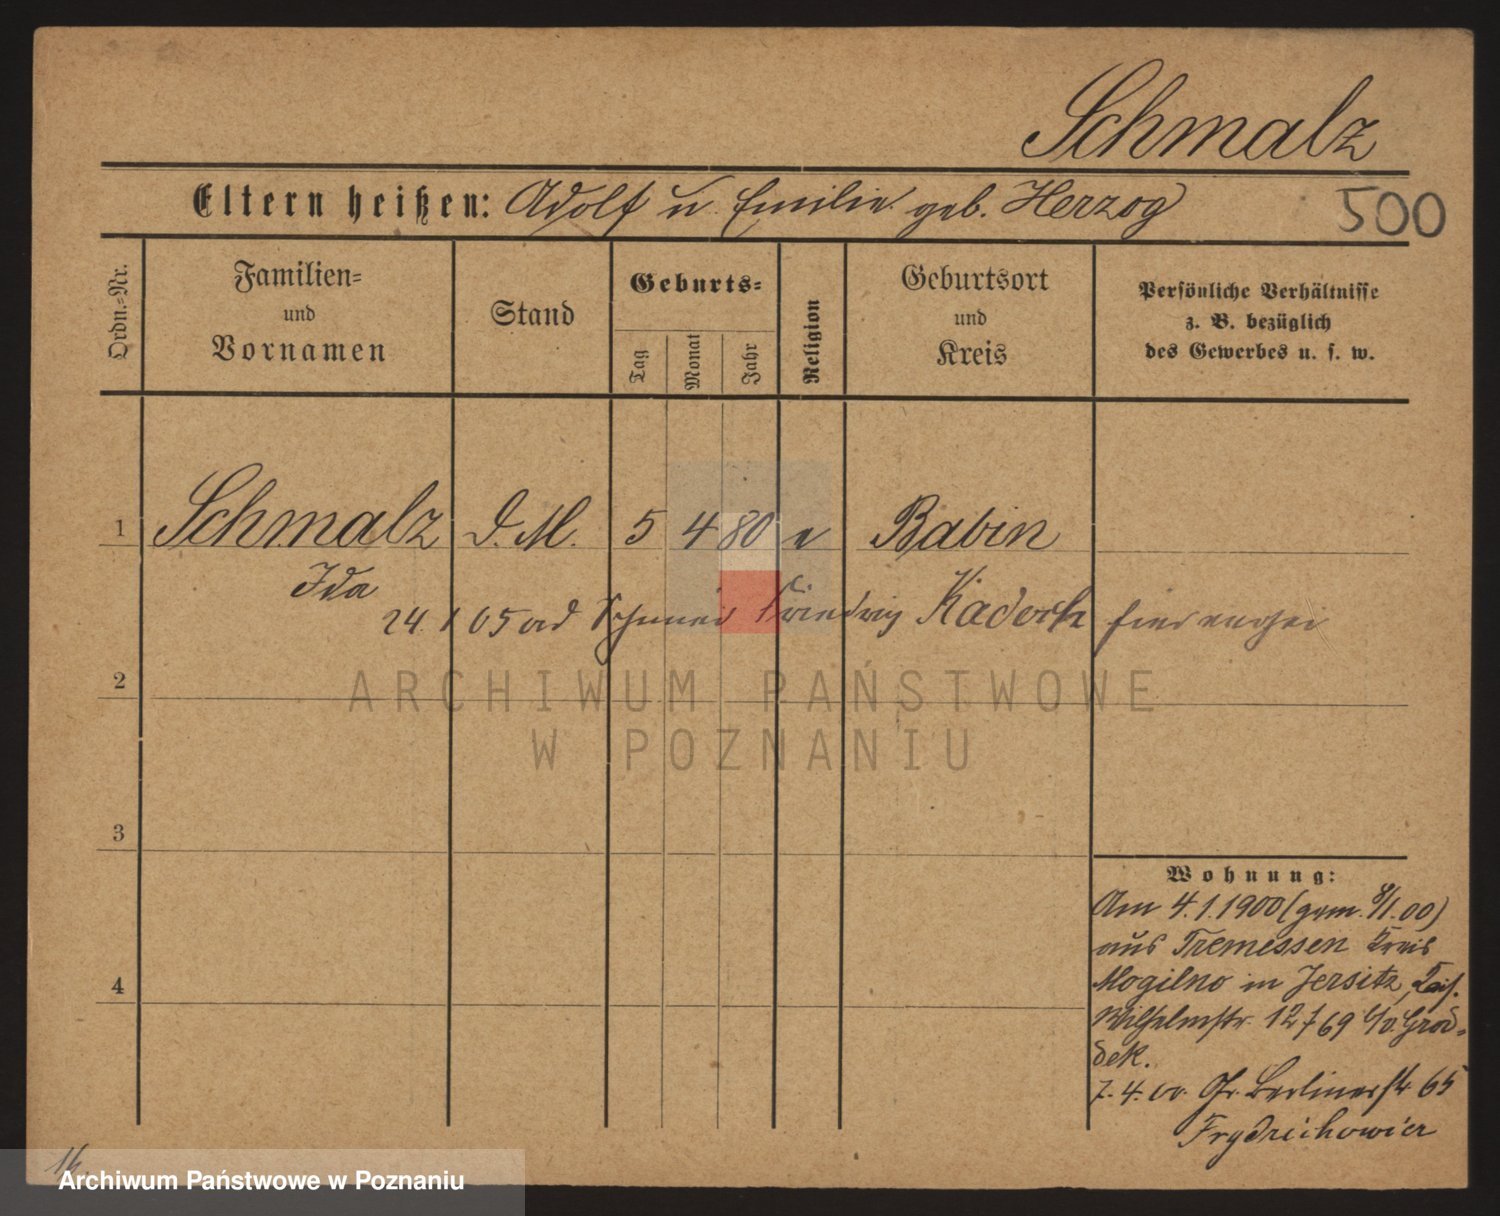 Schmalz
Eltern heißen: Adolf u. Emilie geb. Herzog
500
Ordn.-Nr.
Familien-
und
Vornamen
Stand
Geburts-
Tag
Monat
Jahr
Religion
Geburtsort
und
Kreis
Persönliche Verhältnisse
z. B. bezüglich
des Gewerbes u. s. w.
1 Schmalz D. M. 5 4 80 e Babin
Ida
24. 1 05 Friedrich Kadock
2
ARCHIWUM PAŃSTWOWE
W POZNANIU
3
4
Wohnung:
Am 4.1.1900 (gem. 8/1.00)
aus Tremessen Kreis
Mogilno in Jersitz,
Wilhelmstr. 127/69 b/v. Grod-
dek.
7.4.00. Gr. Berlinerstr 65
Frydrichowicz
Archiwum Państwowe w Poznaniu